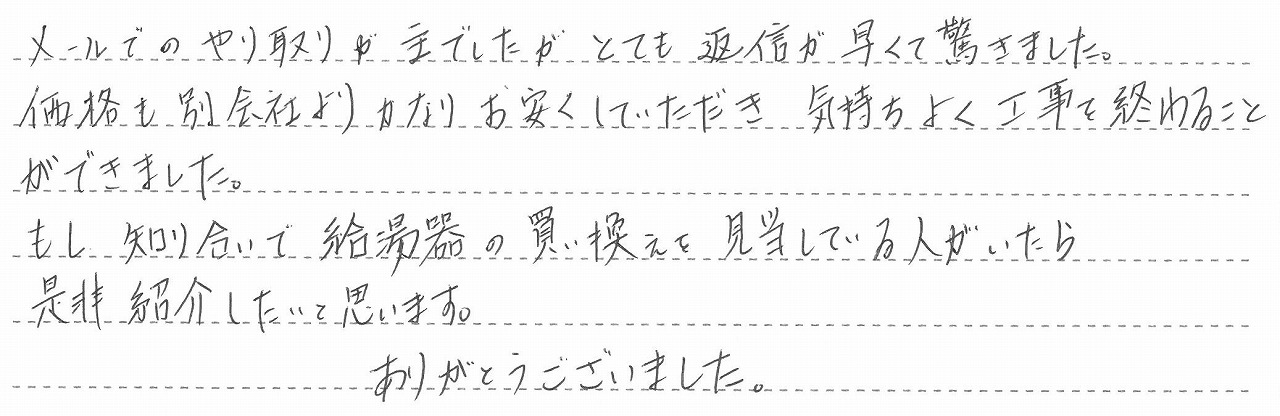 メールでのやり取りが主でしたがとても返信が早くて驚きました。
価格も別会社よりかなりお安くしていただき 気持ちよく工事を終わること
ができました。
もし 知り合いで 給湯器の買い換えを見当している人がいたら
是非 紹介したいと思います。
ありがとうございました。